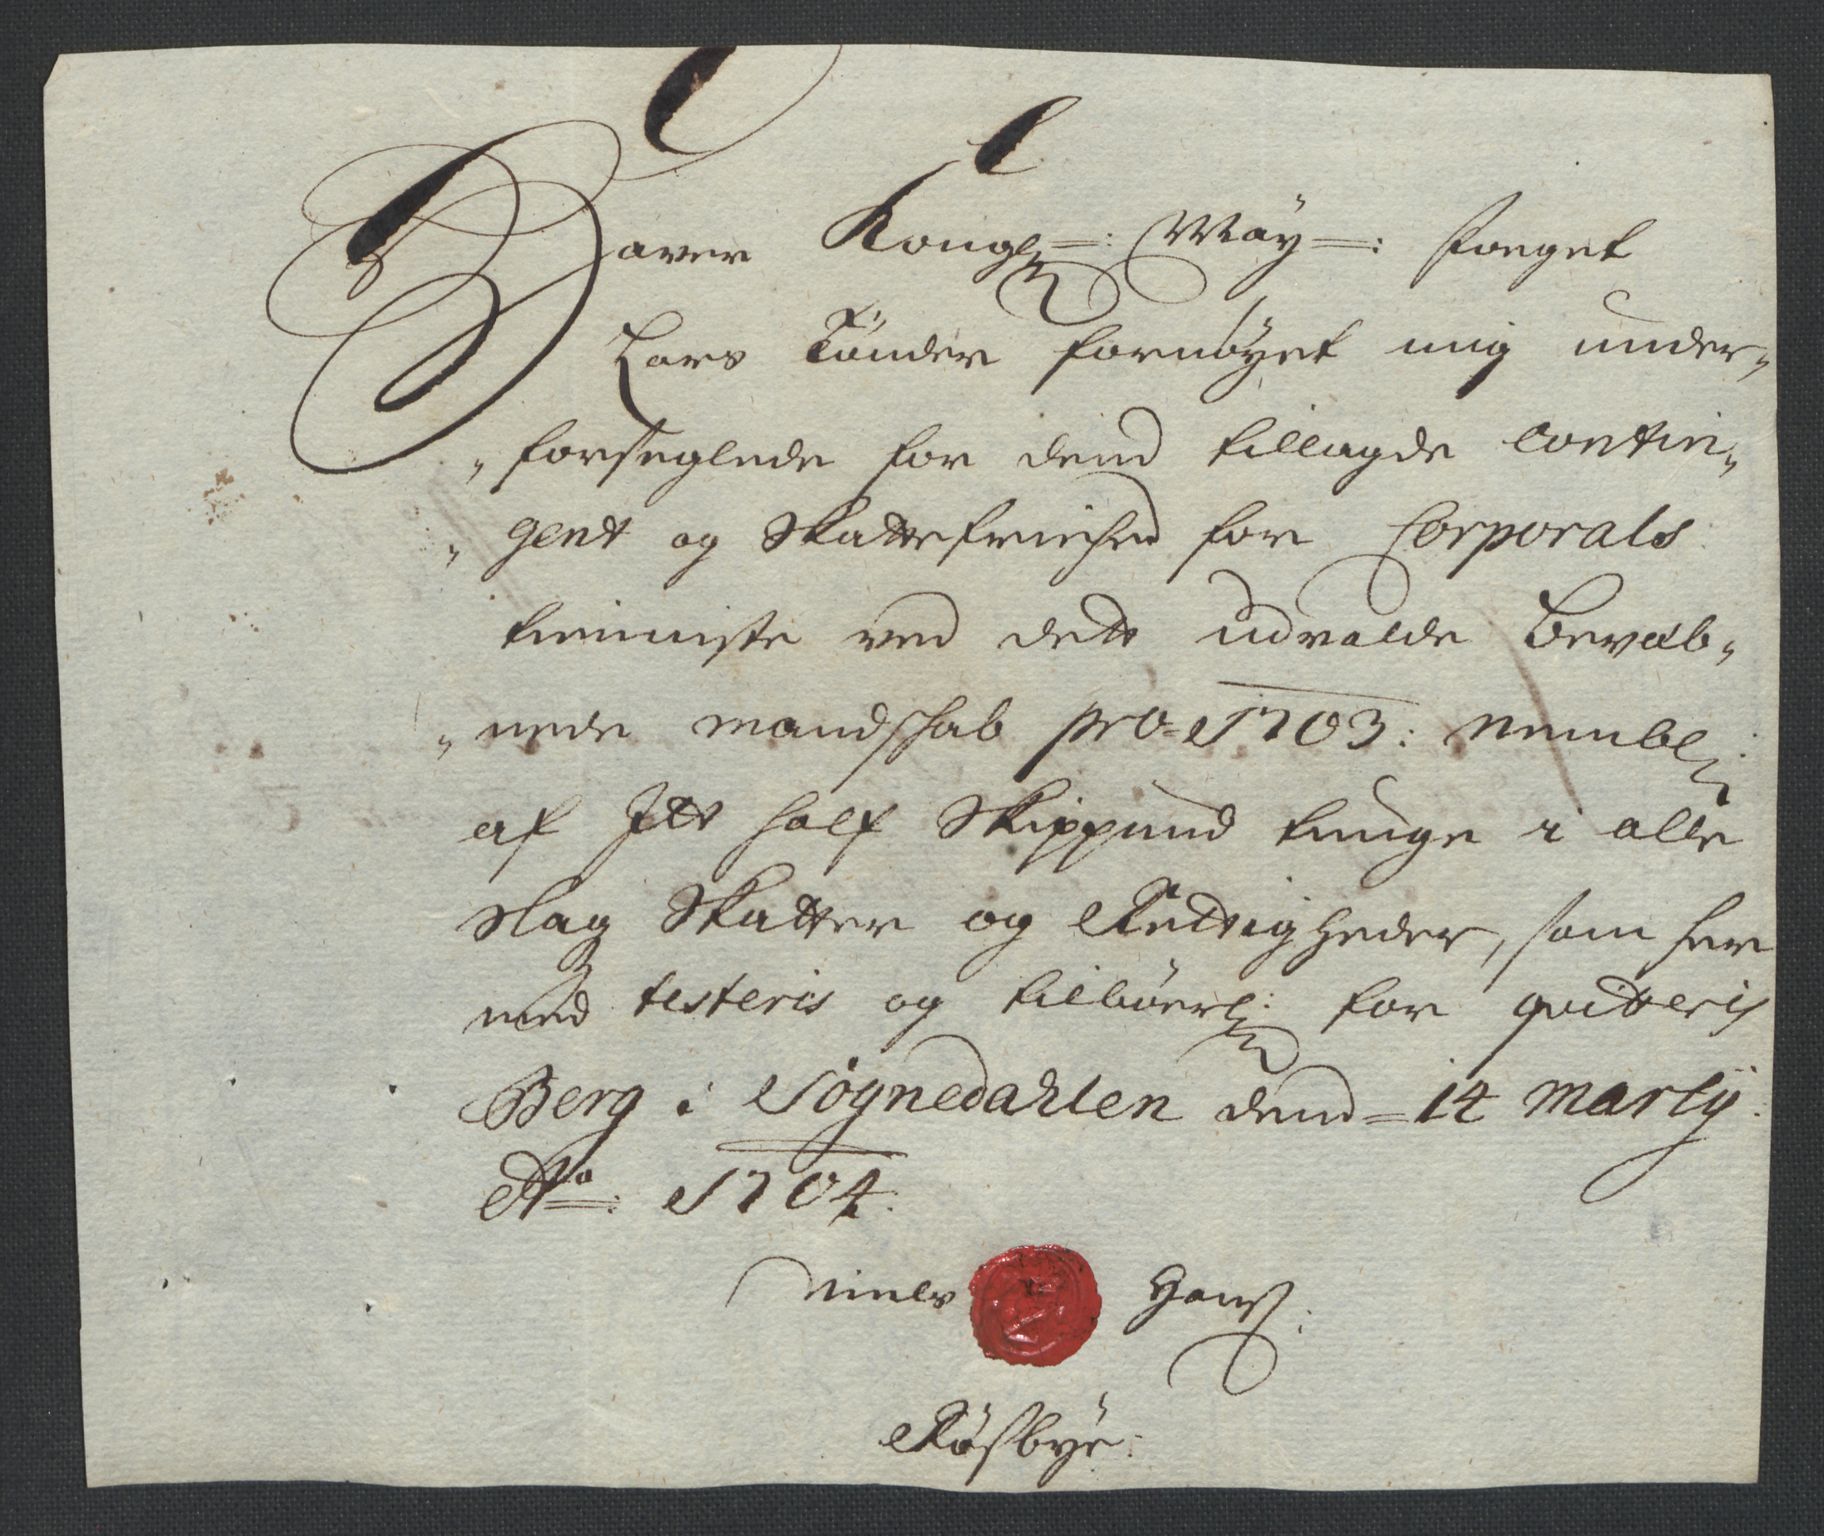 Hafver Kongl: May: Foeget
Lars Tönder fornöyet mig under„
„forseglede for dend tillagde Contin„
„gent og Skattefriehed for Corporals
tienniste ved dett udvalde Bevæb„
„nede mandskab pro 1703: Nembl:
af Jtt half Skippund tunge i alle
slag Skatter og Rettigheder, som her
med testeris og tilbörl: for qvitteris
Berg i Sognedahlen dend 14 Marty
Ao: 1704.
Niels Hanss:
Rösbye: